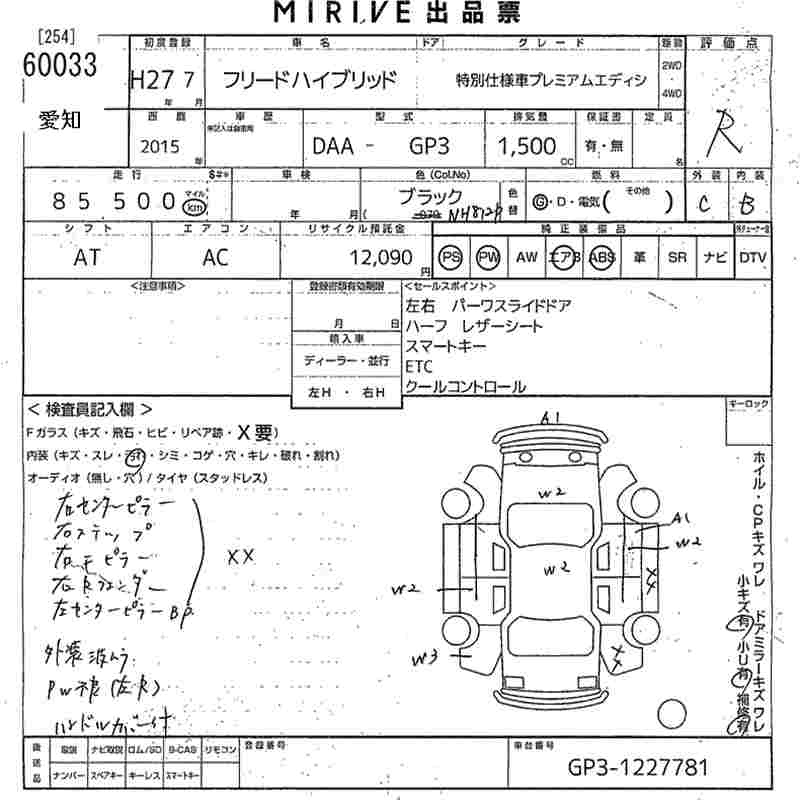 MIRIVE 出品票
[254]
60033
愛知
初度登録 車名 ドア グレード 駆動 評価点
H27 7 年 月 フリードハイブリッド 特別仕様車プレミアムエディシ 2WD・4WD R
車歴 型式 排気量 保証書 定員
2015 年 DAA - GP3 1,500 CC 有・無 名
走行 車検 色 (Col.No) 燃料 外装 内装
85 500 マイル km 年 月 ブラック 色替 G・D・電気( その他 ) C B
シフト エアコン リサイクル預託金 純正装備品
AT AC 12,090 円 PS PW AW エアB ABS 革 SR ナビ DTV
<注意事項> 登録書類有効期限 <セールスポイント>
月 日
左右 パーワスライドドア
輸入車 ハーフ レザーシート
ディーラー・並行 スマートキー
左H ・ 右H ETC
クールコントロール
< 検査員記入欄 > キーロック
Fガラス (キズ・飛石・ヒビ・リペア跡・X要)
内装 (キズ・スレ・汚れ・シミ・コゲ・穴・キレ・破れ・割れ)
オーディオ (無し・穴) / タイヤ (スタッドレス)
右センターピラー
右ステップ
XX
左センターピラー BP
外装波ムラ
ハンドルカバー付
A1
W2
A1
W2
W2
XX
W2
W3
XX
ホイル・CPキズワレ ドアミラーキズワレ
小キズ有 小U有 補修有
後送品 取説 ナビ取説 ロム/SD B-CAS リモコン 登録番号 車台番号
ナンバー スペアキー キーレス スマートキー GP3-1227781